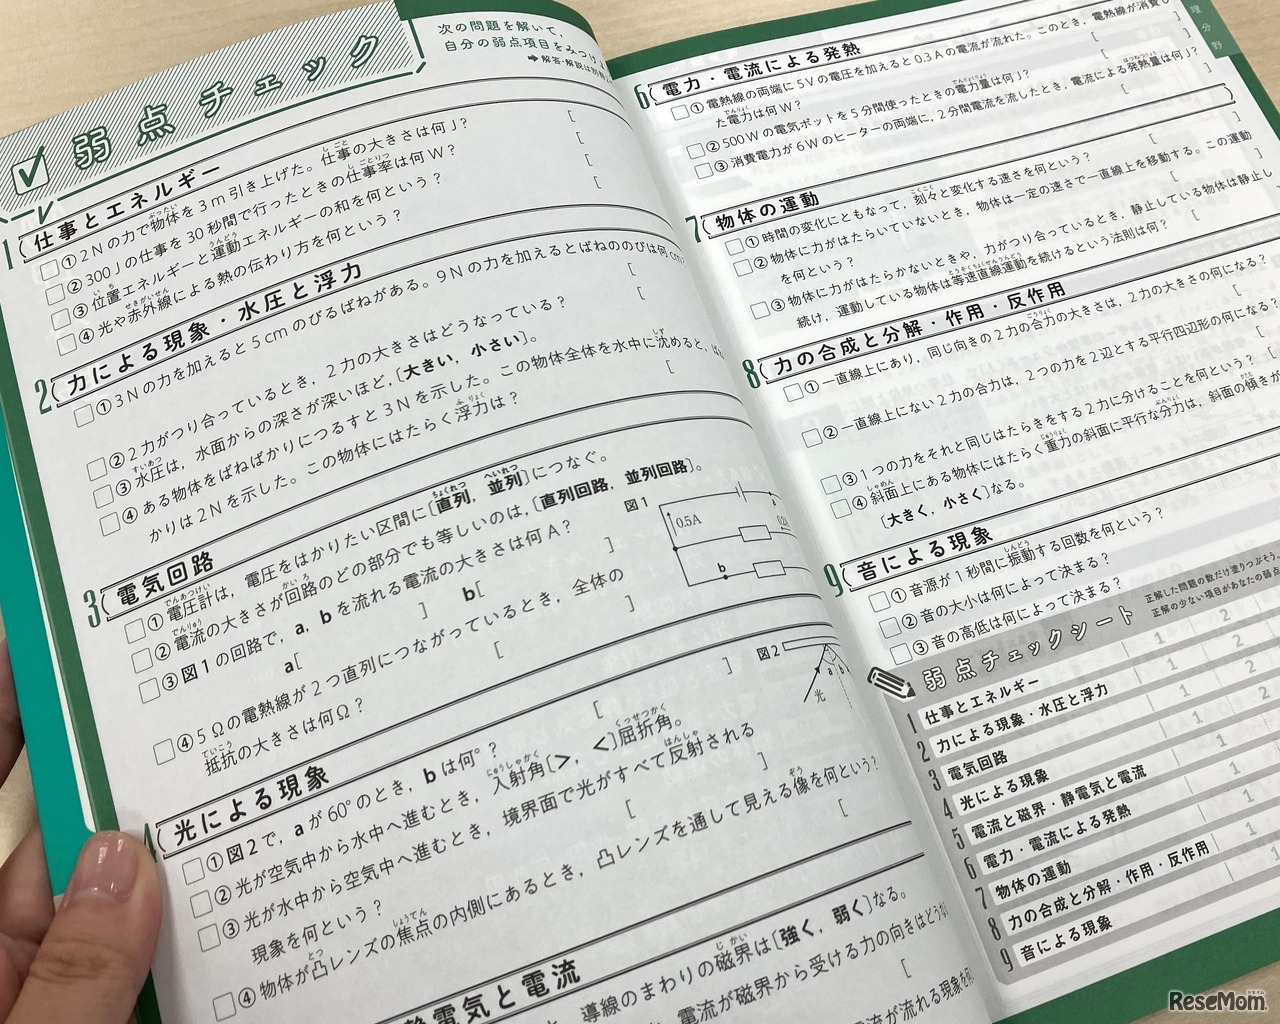 弱点チェック
次の問題を解いて,
自分の弱点項目をみつけ
➡解答・解説は別冊
1 仕事とエネルギー
①2Nの力で物体を3m引き上げた。仕事の大きさは何J?
②300Jの仕事を30秒間で行ったときの仕事率は何W?
③位置エネルギーと運動エネルギーの和を何という?
④光や赤外線による熱の伝わり方を何という?
2 力による現象・水圧と浮力
①3Nの力を加えると5cmのびるばねがある。9Nの力を加えるとばねののびは何cm
②2力がつり合っているとき,2力の大きさはどうなっている?
③水圧は,水面からの深さが深いほど,[大きい,小さい]。
④ある物体をばねばかりにつるすと3Nを示した。この物体全体を水中に沈めると,
かりは2Nを示した。この物体にはたらく浮力は?
3 電気回路
①電圧計は,電圧をはかりたい区間に[直列,並列]につなぐ。
②電流の大きさが回路のどの部分でも等しいのは,[直列回路,並列回路]。
③図1の回路で,a,bを流れる電流の大きさは何A?
a[ ] b[ ]
④5Ωの電熱線が2つ直列につながっているとき,全体の
抵抗の大きさは何Ω?
図1
0.5A
a
b
4 光による現象
①図2で,aが60°のとき,bは何°?
②光が空気中から水中へ進むとき,入射角[>,<]屈折角。
③光が水中から空気中へ進むとき,境界面で光がすべて反射される
現象を何という?
④物体が凸レンズの焦点の内側にあるとき,凸レンズを通して見える像を何という?
図2
a b
光
静電気と電流
導線のまわりの磁界は[強く,弱く]なる。
電流が磁界から受ける力の向きはどうな
電流が流れる現象を何
6 電力・電流による発熱
①電熱線の両端に5Vの電圧を加えると0.3Aの電流が流れた。このとき,電熱線が消費し
た電力は何W?
②500Wの電気ポットを5分間使ったときの電力量は何J?
③消費電力が6Wのヒーターの両端に,2分間電流を流したとき,電流による発熱量は何J?
7 物体の運動
①時間の変化にともなって,刻々と変化する速さを何という?
②物体に力がはたらいていないとき,物体は一定の速さで一直線上を移動する。この運動
を何という?
③物体に力がはたらかないときや,力がつり合っているとき,静止している物体は静止し
続け,運動している物体は等速直線運動を続けるという法則は何?
8 力の合成と分解・作用・反作用
①一直線上にあり,同じ向きの2力の合力の大きさは,2力の大きさの何になる?
②一直線上にない2力の合力は,2つの力を2辺とする平行四辺形の何になる?
③1つの力をそれと同じはたらきをする2力に分けることを何という?
④斜面上にある物体にはたらく重力の斜面に平行な分力は,斜面の傾きが
[大きく,小さく]なる。
9 音による現象
①音源が1秒間に振動する回数を何という?
②音の大小は何によって決まる?
③音の高低は何によって決まる?
弱点チェックシート
正解した問題の数だけ塗りつぶそう。
正解の少ない項目があなたの弱点
1 仕事とエネルギー 1 2
2 力による現象・水圧と浮力 1 2
3 電気回路 1 2
4 光による現象 1 2
5 電流と磁界・静電気と電流 1
6 電力・電流による発熱 1
7 物体の運動 1
8 力の合成と分解・作用・反作用 1
9 音による現象
理
分
野
ReseMom